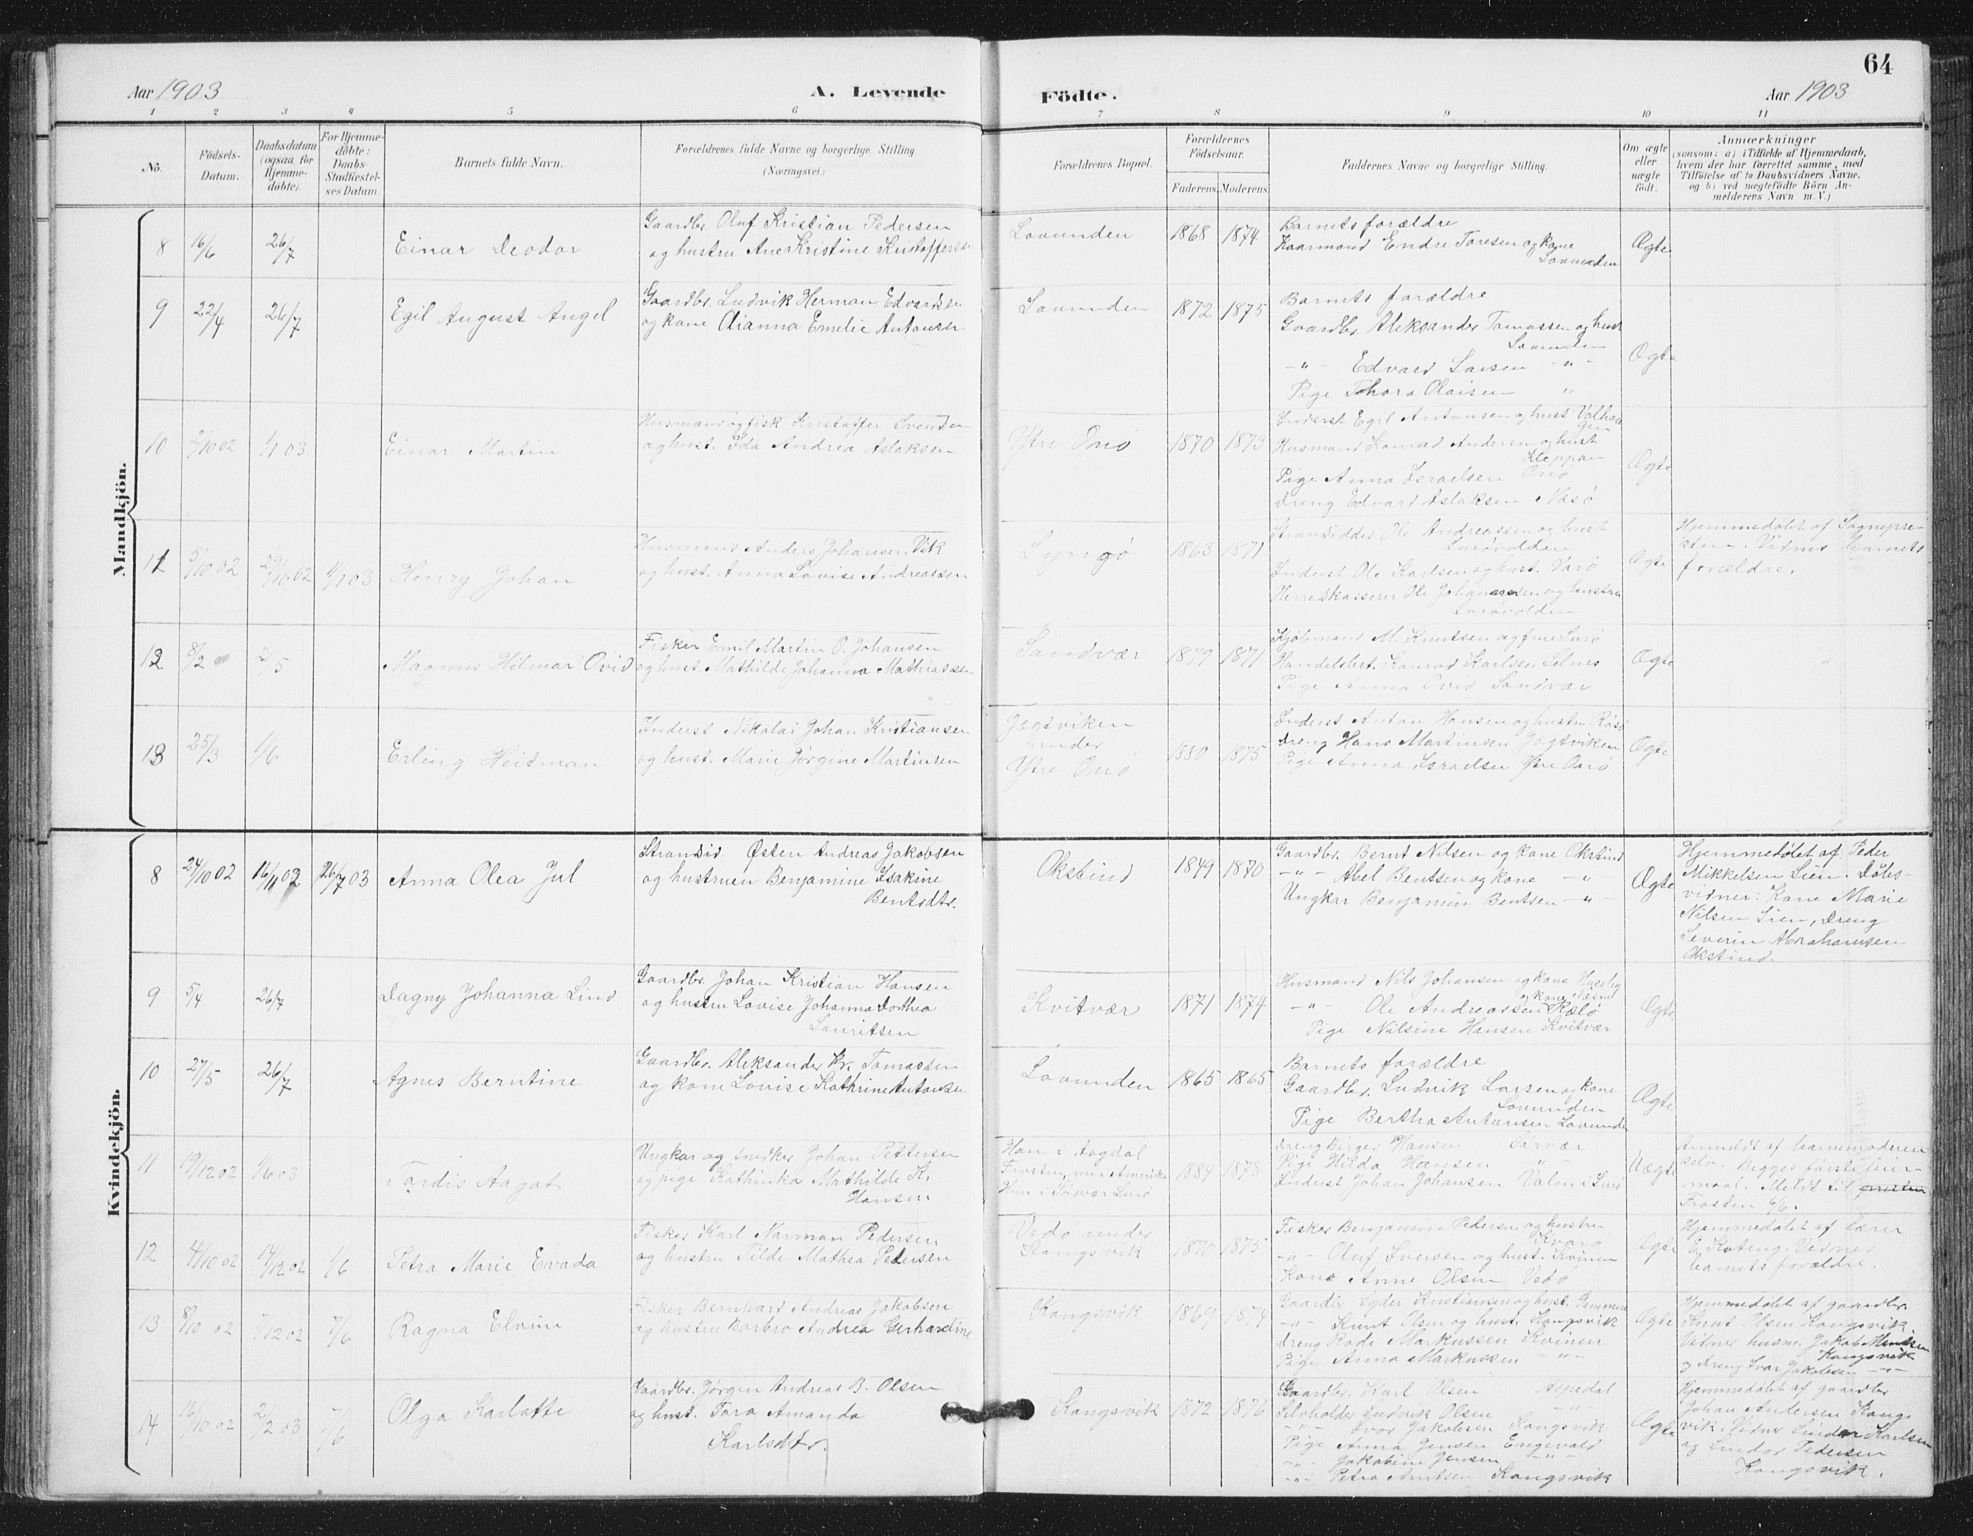 64
Aar 1903
A. Levende
Födte.
Aar 1903
1 2 3 4 5 6 7 8 9 10 11
No.
Födsels-Datum.
Daabsdatum (ogsaa for Hjemme-döbte).
For Hjemme-döbte: Daabs-Stadfæstel-ses Datum
Barnets fulde Navn.
Forældrenes fulde Navne og borgerlige Stilling.
(Næringsvei.)
Forældrenes Bopæl.
Forældrenes Födselsaar.
Faderens. Moderens.
Faddernes Navne og borgerlige Stilling.
Om ægte eller uægte födt.
Anmærkninger
(saasom: a) i Tilfælde af Hjemmedaab,
hvem der har forrettet samme, med
Tilföielse af to Daabsvidners Navne.
og b) ved uægtefödte Börn An-
melderens Navn m. V.)
Mandkjön.
8 16/6 26/7 Einar Deodor
Gaardbr. Oluf Kristian Pedersen
og hustru Ane Kristine Kristoffersen
Lovunden 1868 1874
Barnets forældre
Haarmand Endre Toresen og kone
Lovunden
Ægte
9 22/4 26/7 Egil August Angel
Gaardbr. Ludvik Herman Edvardsen
og kone Dianna Emelie Antonsen
Lovunden 1872 1875
Barnets forældre
Gaardbr Aleksander Tomassen og hust
Lovunden
-"- Edvard Larsen -"-
Pige Thora Olaisen "
Ægte
10 2/10 02 1/1 03 Einar Martin
Husmand og fisk Kristoffer Svendsen
og hust. Ida Andrea Aslaksen
Ytre Onø 1870 1873
Inderst Egil Antonsen og hust
Husmand Konrad Andersen og hust
Kleppan
Pige Anna Israelsen Onø
dreng Edvard Aslaksen Næsø
Ægte
11 5/10 02 /10 02 1/1 03 Henry Johan
Husmand Anders Johansen Vik
og hust. Anna Lovise Andreassen
Lyngø 1863 1871
Strandsidder Ole Andreassen og hust
Lurøvolden
Inderst Ole Karlsen og hust. Varø
Herredskasserer Ole Johannessen og hustru
Lurøvolden
Ægte
Hjemmedøbt af Sognepre-
sten. Vidner barnets
forældre.
12 8/2 2/5 Magnus Hilmar Ovid
Fisker Emil Martin O. Johansen
og hust. Mathilde Johanna Mathiassen
Sandvær 1879 1871
M. Knutsen og frue Lurø
Handelsbet. Konrad Karlsen Selnes
Pige Anna Ovid Sandvær
Ægte
13 25/3 1/6 Erling Heitman
Inderst Nikolai Johan Kristiansen
og hust. Marie Jørgine Martinsen
Jægtviken
under
Ytre Onø
1880 1875
Inderst Anton Hansen og hustru
dreng Hans Martinsen Jægtviken
Pige Anna Israelsen Ytre Onø
Ægte
Kvindekjön.
8 24/10 02 16/11 02 26/7 03 Anna Olea Jul
Strandsid Østen Andreas Jakobsen
og hustruen Benjamine Isakine
Bentsdtr.
Okstind 1849 1870
Gaardbr. Bernt Nilsen og kone Okstind
-"- Abel Bentsen og kone -"-
Ungkar Benjamin Bentsen -"-
Ægte
Hjemmedøbt af Peder
Mikkelsen Lien. Døbs-
vidner: Kone Marie
Nilsen Lien, Dreng
Severin Abrahamsen
Okstind.
9 5/4 26/7 Dagny Johanna Lind
Gaardbr. Johan Kristian Hansen
og hustru Lovise Johanna Dorthea
Lauritsen
Kvitvær 1871 1874
Husmand Nils Johansen og kone
-"- Ole Andreassen
Pige Nilsine Hansen Kvitvær
Ægte
10 27/5 26/7 Agnes Berntine
Gaardbr. Aleksander Kr. Tomassen
og kone Lovise Kathrine Antonsen
Lovunden 1865 1865
Barnets forældre
Gaardbr. Ludvik Larsen og kone
Lovunden
Pige Bertha Antonsen Lovunden
Ægte
11 19/12 02 1/6 03 Tordis Aagot
Ungkar og snedker Johan Pettersen
og pige Kathinka Mathilde K.
Hansen
Han i Aagdal
Frosten, nu i Amerika
Hun i Sørvær Lurø
1884 1878
dreng Birger Hansen Sørvær
Pige Hilda Hansen "
Inderst Johan Johansen Valen i Lurø
Uægte
Anmeldt af barnemoderen
selv. Begges første leier-
maal. Meldt til
Frosten
12 4/10 02 14/12 02 1/6 Petra Marie Evada
Fisker Karl Norman Pedersen
og hustru Tilde Mathea Pedersen
Vedø under
Kongsvik
1870 1875
Fisker Benjamin Pedersen og hustru
Kvarø
-"- Oluf Iversen og hust. Kvinen
Kone Anne Olsen Vedø
Ægte
Hjemmedøbt af lærer
E. Koteng. Vidner
barnets forældre.
13 8/10 02 7/12 02 7/6 Ragna Elvine
Fisker Bernhard Andreas Jakobsen
og hustru Barbro Andrea Gerhardine
Kongsvik 1869 1874
Gaardbr. Lyder Kristiansen og hust.
-"- Knut Olsen og hust. Kongsvik
dreng Rode Markussen Kvinen
Pige Anna Markussen -"-
Ægte
Hjemmedøbt af gaardbr.
Knut Olsen Kongsvik.
Vidner husm. Jakob
Kongsvik
og dreng Ivar Jakobsen -"-
14 16/10 02 2/2 03 7/6 Olga Karlotte
Gaardbr. Jørgen Andreas B. Olsen
og hust. Tora Amanda
Karlsdtr.
Kongsvik 1872 1876
Gaardbr. Karl Olsen Aspedal
Selvholder Ludvik Olsen -"-
-"- Ivar Jakobsen Kongsvik
Pige Anna Jensen Engevold
-"- Jakobine Jensen -"-
-"- Petra Arntsen Kongsvik
Ægte
Hjemmedøbt af gaardbr
Johan Andersen Kongs
vik. Vidner Karlsen
og Pedersen
Kongsvik.